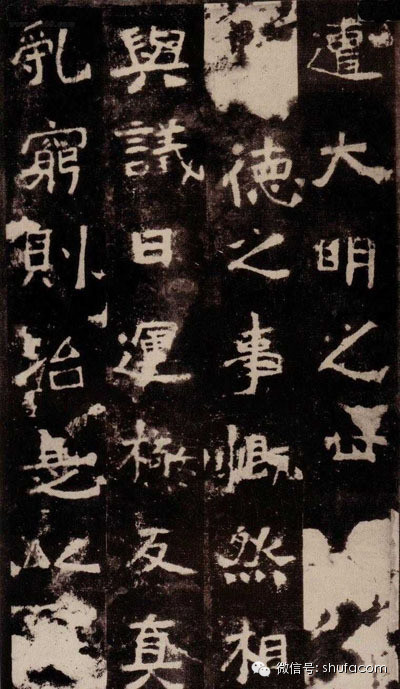 遭大明之世
德之事慨然相
與議曰運極反真
乱窮則治是以
微信号: shufacom